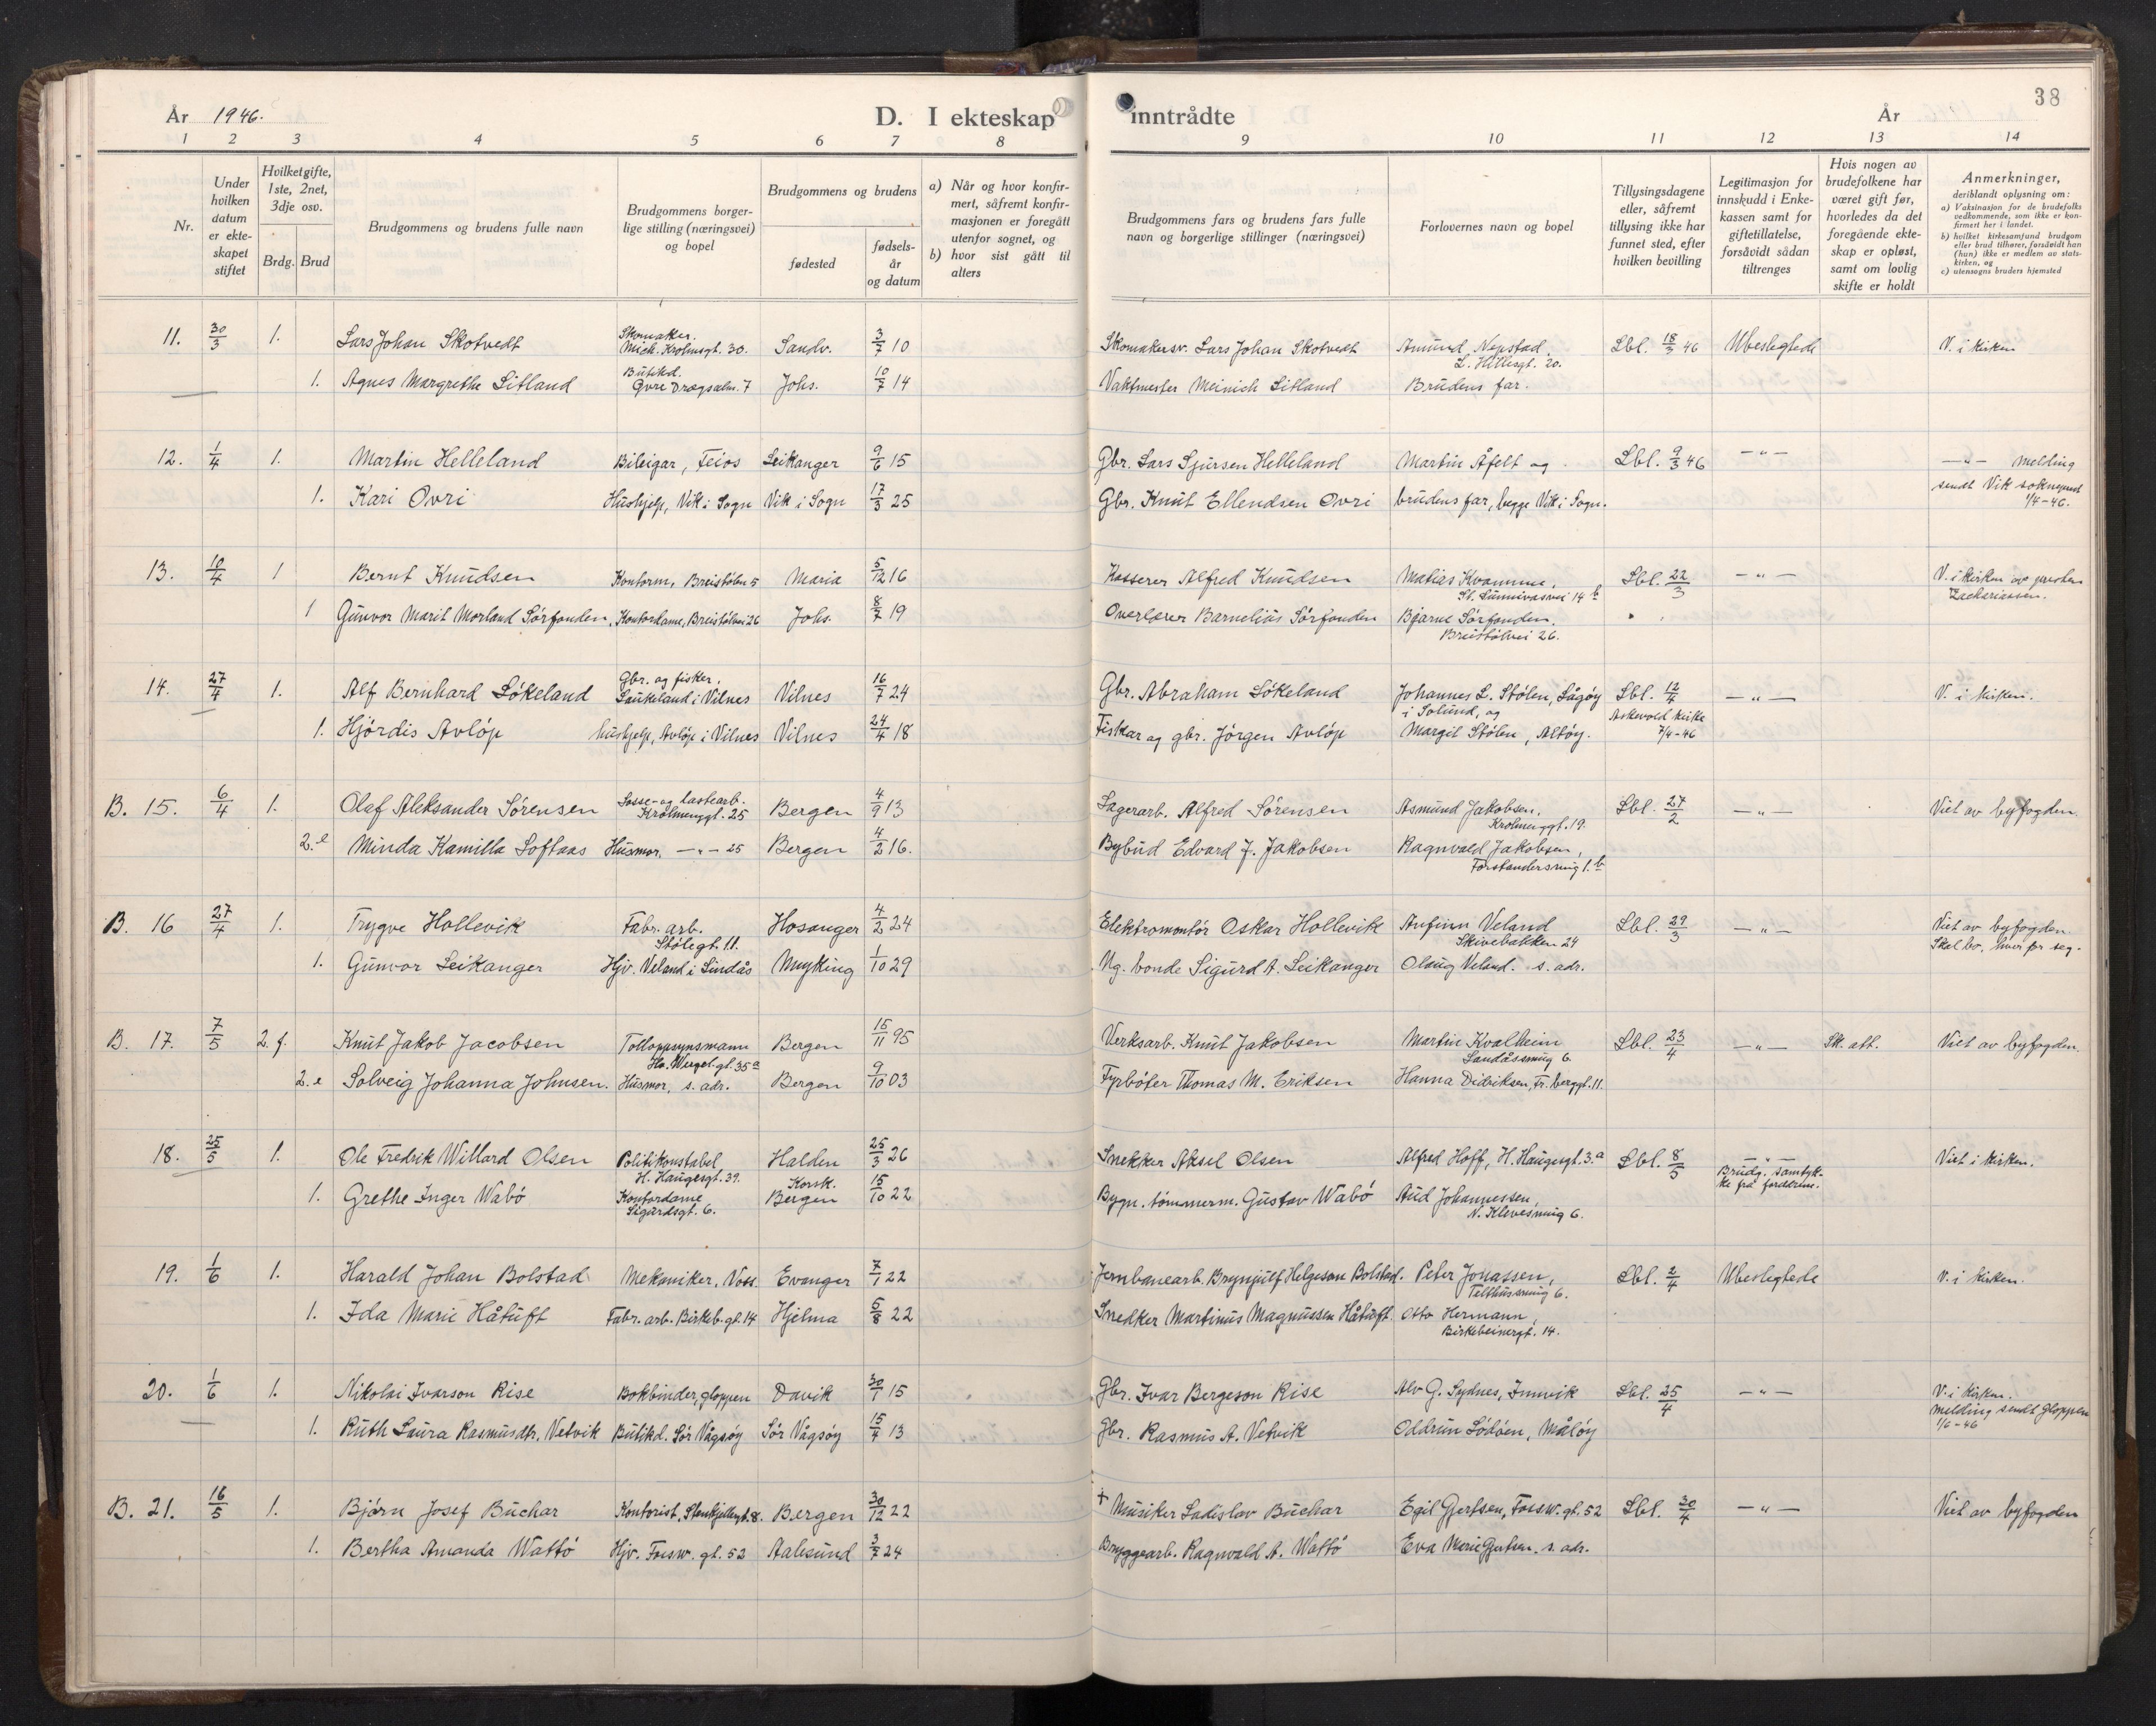 38
År 1946. D. I ekteskap inntrådte År
1 2 3 4 5 6 7 8 9 10 11 12 13 14
Nr.
Under hvilken datum er ekteskapet stiftet
Hvilket gifte, 1ste, 2net, 3dje osv.
Brdg. Brud
Brudgommens og brudens fulle navn
Brudgommens borgerlige stilling (næringsvei) og bopel
Brudgommens og brudens
fødested
fødselsår og datum
a) Når og hvor konfirmert, såfremt konfirmasjonen er foregått utenfor sognet, og
b) hvor sist gått til alters
Brudgommens fars og brudens fars fulle navn og borgerlige stillinger (næringsvei)
Forlovernes navn og bopel
Tillysingsdagene eller, såfremt tillysing ikke har funnet sted, efter hvilken bevilling
Legitimasjon for innskudd i Enkekassen samt for giftetillatelse, forsåvidt sådan tiltrenges
Hvis nogen av brudefolkene har været gift før, hvorledes da det foregående ekteskap er opløst, samt om lovlig skifte er holdt
Anmerkninger, deriblandt oplysning om:
a) Vaksinasjon for de brudefolks vedkommende, som ikke er konfirmert her i landet.
b) hvilket kirkesamfund brudgom eller brud tilhører, forsåvidt han (hun) ikke er medlem av statskirken, og
c) utensogns bruders hjemsted
11. 30/3 1. Lars Johan Skotvedt Skomaker. Mich. Krohnsgt. 30. Sandv. 3/7 10 Skomakersv. Lars Johan Skotvedt Amund Nepstad, L. Hillesgt. 20. Lbl. 18/3 46 Ubeslegtede V. i kirken
1. Agnes Margrethe Litland Butikd. Øvre Dragsalm. 7 Johs. 10/7 14 Vaktmester Meinich Litland Brudens far.
12. 1/4 1. Martin Helleland Bileigar, Feios Leikanger 9/6 15 Gbr. Lars Sjursen Helleland Martin Åfelt og Lbl. 9/3 46 — " — — " — melding
1. Kari Ovri Hushjelp, Vik i Sogn Vik i Sogn 17/3 25 Gbr. Knut Ellendsen Ovri brudens far, begge Vik i Sogn. sendt Vik sokneprest 1/4-46.
13. 10/4 1 Bernt Knudsen Kontorm, Breistølsv 5 Maria 5/12 16 Kasserer Alfred Knudsen Matias Kvamme, St. Sunnivasvei 14 b Lbl. 22/3 — " — V. i kirken av presten Zachariassen.
1 Gunvor Marit Morland Sørfonden, Kontordame, Breistølsvei 26 Johs. 8/7 19 Overlærer Barnelius Sørfonden Bjarne Sørfonden, Breistølsvei 26.
14. 27/4 1. Alf Bernhard Løkeland Gbr. og fisker, Laukeland i Vilnes Vilnes 16/7 24 Gbr. Abraham Løkeland Johannes L. Stølen, Lågøy i Solund, og Lbl. 12/4 — " — V. i kirken.
1. Hjørdis Avløp hushjelp, Avløp i Vilnes Vilnes 24/4 18 Fiskar og gbr. Jørgen Avløp Margit Stølen, Altøy. Askvold kirke 7/4-46
B. 15. 6/4 1. Olaf Aleksander Sørensen Losse- og lastearb. Krohnenggt. 25 Bergen 4/9 13 Lagerarb. Alfred Sørensen Asmund Jakobsen, Krohnenggt. 19. Lbl. 27/2 — " — Viet av byfogden.
2. e Minda Kamilla Loftaas Husmor, — " — 25 Bergen 4/2 16. Bybud Edvard J. Jakobsen Ragnvald Jakobsen, Forstandersmug 1. b
B. 16 27/4 1. Trygve Hollevik Fabr. arb. Stølegt. 11. Hosanger 4/2 24 Elektromontør Oskar Hollevik Anfinn Veland Skivebakken 24 Lbl. 29/3 — " — Viet av byfogden. Skal bo, hver for seg.
1. Gunvor Leikanger Hjv. Veland i Lindås Myking 1/10 29 Ug. bonde Sigurd A. Leikanger Olaug Veland. s. adr.
B. 17. 7/5 2. f. Knut Jakob Jacobsen Tolloppsynsmann Hr. Wergel. gt. 35 a Bergen 15/11 95 Verksarb. Knut Jakobsen Martin Kvalheim Sandåssmug 6. Lbl. 23/4 — " — Sk. att. Viet av byfogden.
2. e Solveig Johanna Johnsen. Husmor, s. adr. Bergen 9/10 03 Fyrbøter Thomas M. Eriksen Hanna Didriksen, Fr. berggt. 11.
18. 25/5 1. Ole Fredrik Willard Olsen Politikonstabel H. Haugesgt. 39. Halden 25/3 26 Snekker Aksel Olsen Alfred Hoff, H. Haugesgt. 3. a Lbl. 8/5 — " — Brudg. samtykke fra foreldrene. Viet i kirken.
1. Grethe Inger Wabø Kontordame Sigurdsgt. 6. Korsk. Bergen 15/10 22 Bygn. tømmerm. Gustav Wabø Aud Johannessen, N. Klevesmug 6.
19. 1/6 1. Harald Johan Bolstad Mekaniker, Voss Evanger 7/1 22 Jernbanearb. Brynjulf Helgeson Bolstad. Peter Jonassen, Telthussmug 6. Lbl. 2/4 Ubeslegtede V. i kirken.
1. Ida Marie Håtuft Fabr. arb. Birkeb. gt. 14 Hjelma 5/8 22 Snedker Martinus Magnussen Håtuft. Otto Hermann, Birkebeinergt. 14.
20. 1/6 1. Nikolai Ivarson Rise Bokbinder, Gloppen Davik 30/1 15 Gbr. Ivar Bergeson Rise Alv G. Sydnes, Innvik Lbl. 25/4 — " — V. i kirken. melding sendt Gloppen 1/6-46
1. Ruth Laura Rasmusdtr. Vetvik Butikd. Sør Vågsøy Sør Vågsøy 15/4 13 Gbr. Rasmus A. Vetvik Oddrun Lødøen, Måløy
B. 21. 16/5 1. Bjørn Josef Buchar Kontorist, Stenkjellergt. 8. Bergen 30/12 22 + Musiker Ladislav Buchar Egil Gjertsen, Forsw. gt. 52 Lbl. 30/4 — " — Viet av byfogden
1. Bertha Amanda Wattø Hjv. Forsw. gt. 52 Aalesund 3/7 24 Bryggearb. Ragnvald A. Wattø Eva Marie Gjertsen. s. adr.